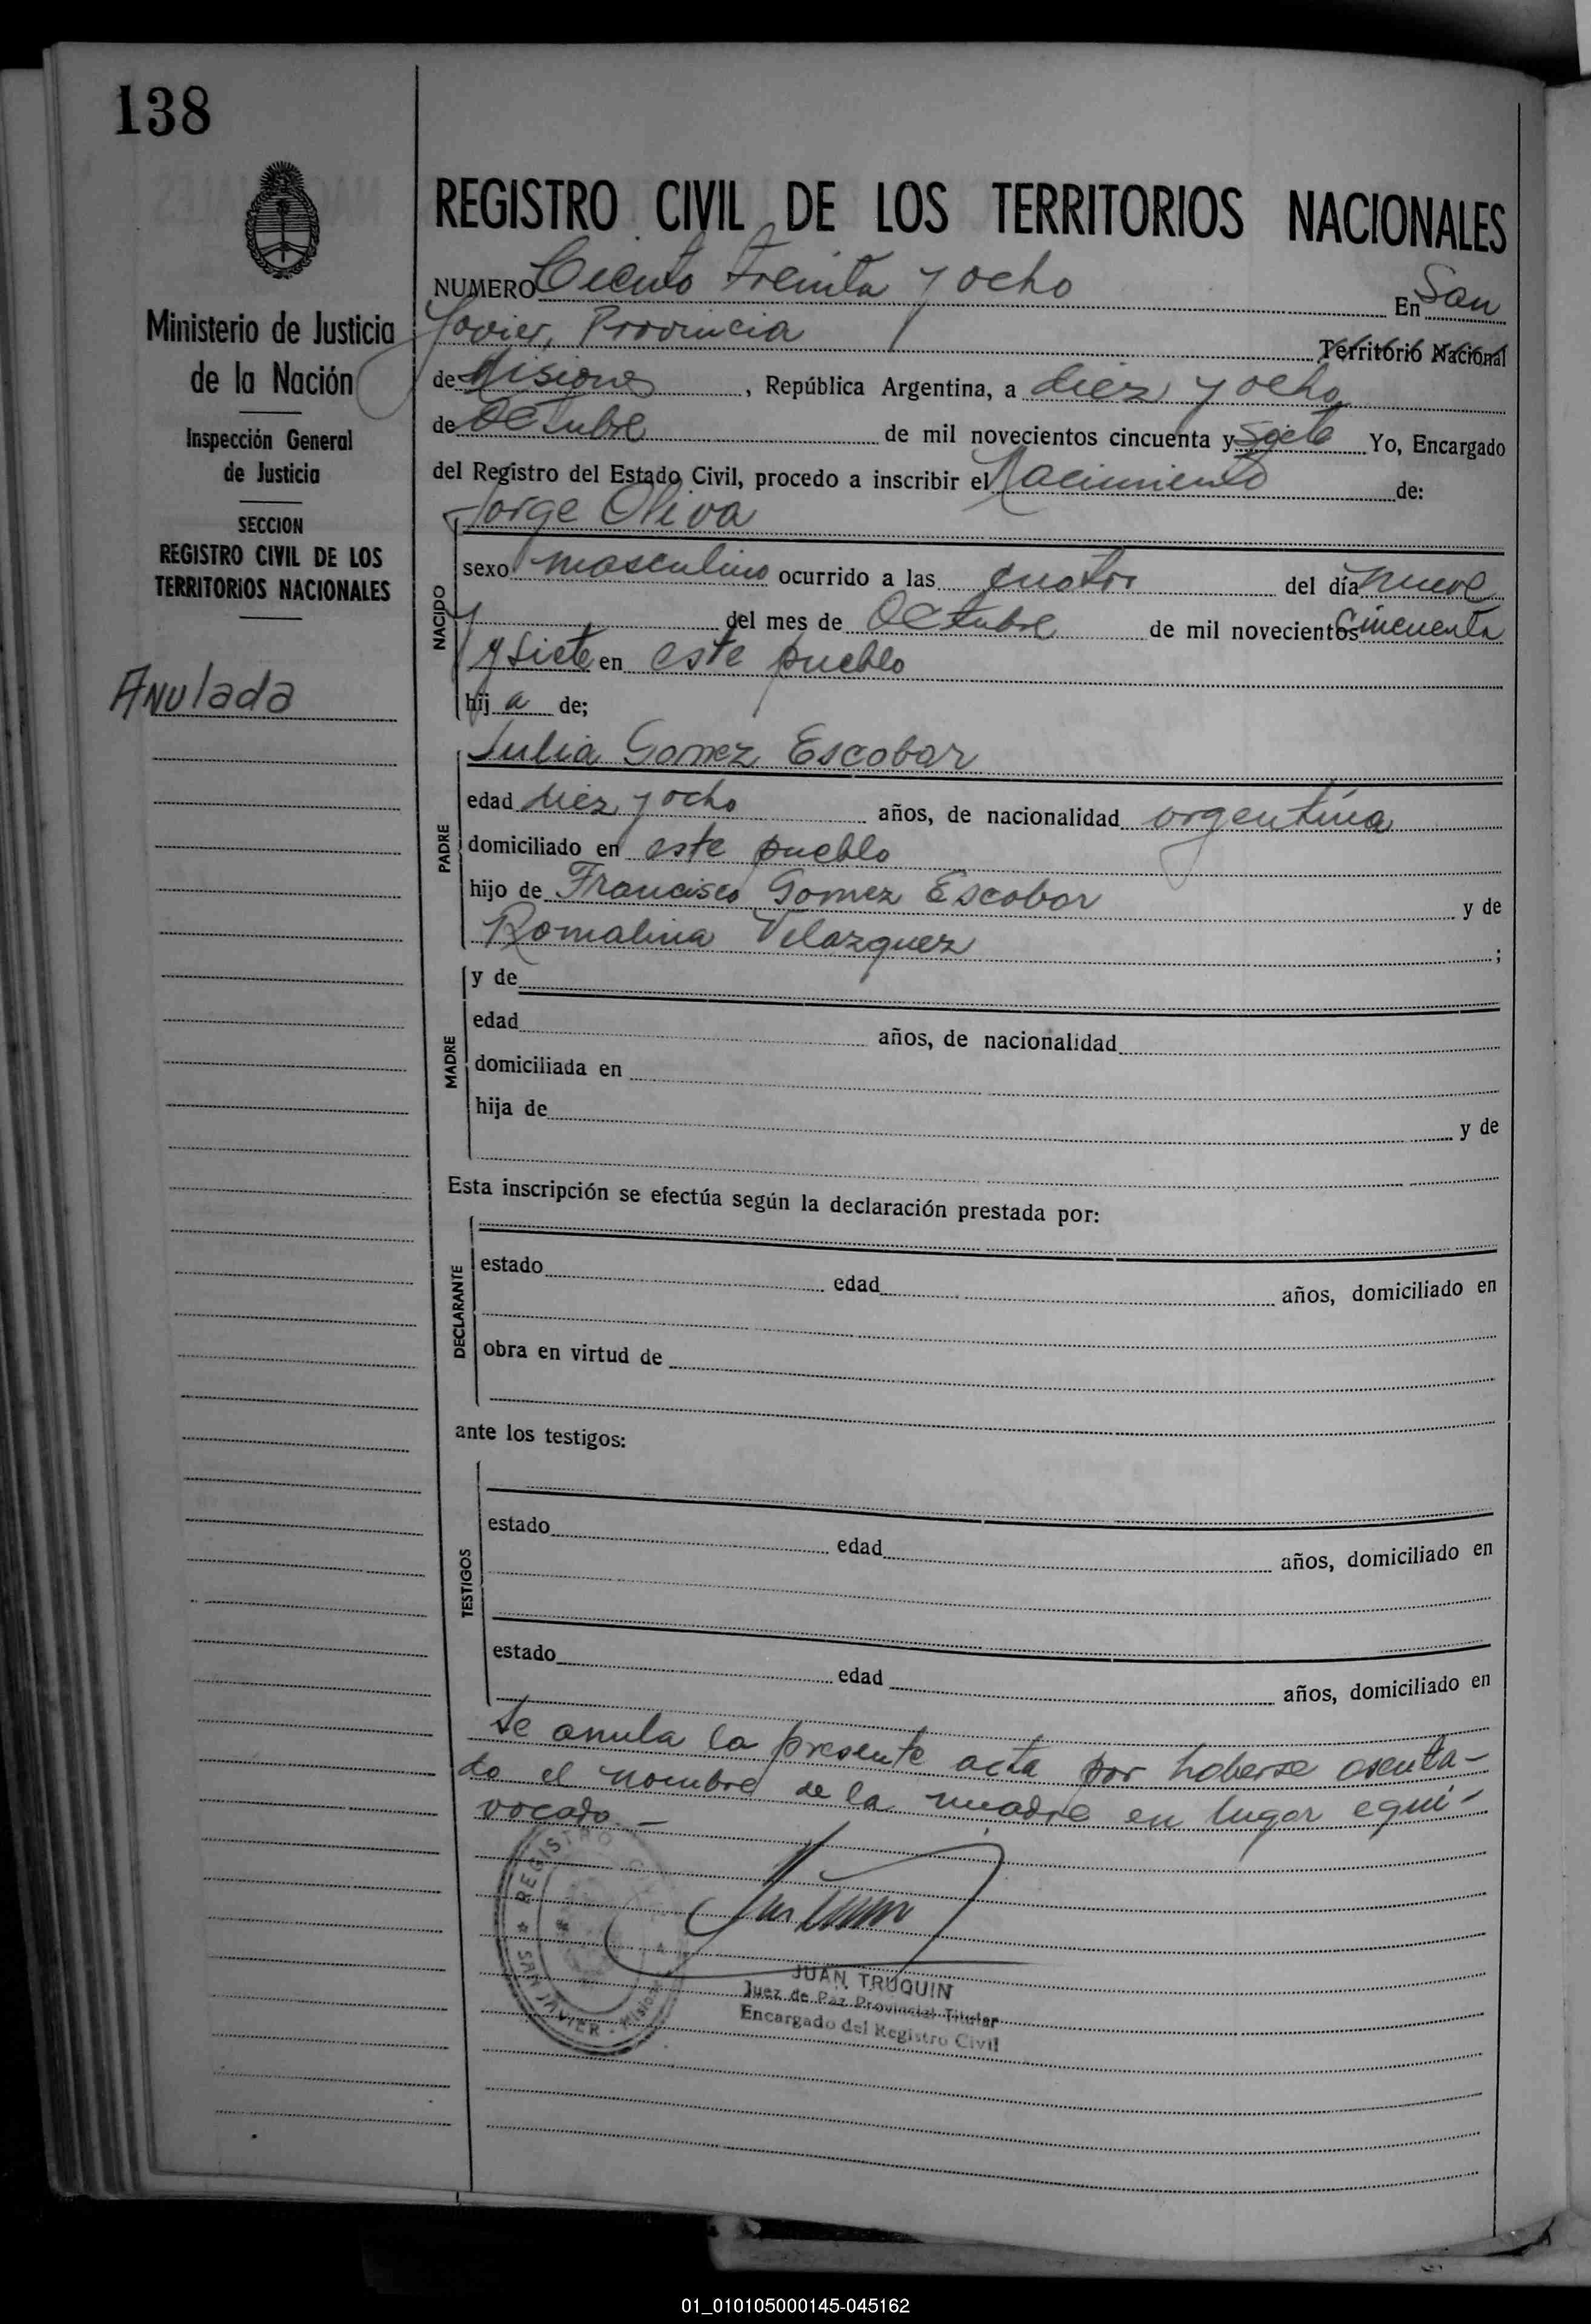 138
REGISTRO CIVIL DE LOS TERRITORIOS NACIONALES
Ministerio de Justicia
de la Nación
Inspección General
de Justicia
SECCION
REGISTRO CIVIL DE LOS
TERRITORIOS NACIONALES
Anulada
NUMERO Ciento treinta y ocho En San
Javier, Provincia Territorio Nacional
de Misiones, República Argentina, a diez y ocho
de Octubre de mil novecientos cincuenta y siete Yo, Encargado
del Registro del Estado Civil, procedo a inscribir el Nacimiento de:
NACIDO
Jorge Oliva
sexo masculino ocurrido a las cuatro del día nueve
del mes de Octubre de mil novecientos cincuenta
y siete en este pueblo
hij a de;
PADRE
Julia Gomez Escobar
edad diez y ocho años, de nacionalidad argentina
domiciliado en este pueblo
hijo de Francisco Gomez Escobar y de
Romalina Velazquez ;
MADRE
y de
edad años, de nacionalidad
domiciliada en
hija de y de
Esta inscripción se efectúa según la declaración prestada por:
DECLARANTE
estado edad años, domiciliado en
obra en virtud de
ante los testigos:
TESTIGOS
estado edad años, domiciliado en
estado edad años, domiciliado en
Se anula la presente acta por haberse asenta-
do el nombre de la madre en lugar equi-
vocado.-
REGISTRO
SAN JAVIER - Misiones
JUAN TRUQUIN
Juez de Paz Provincial Titular
Encargado del Registro Civil
01_010105000145-045162